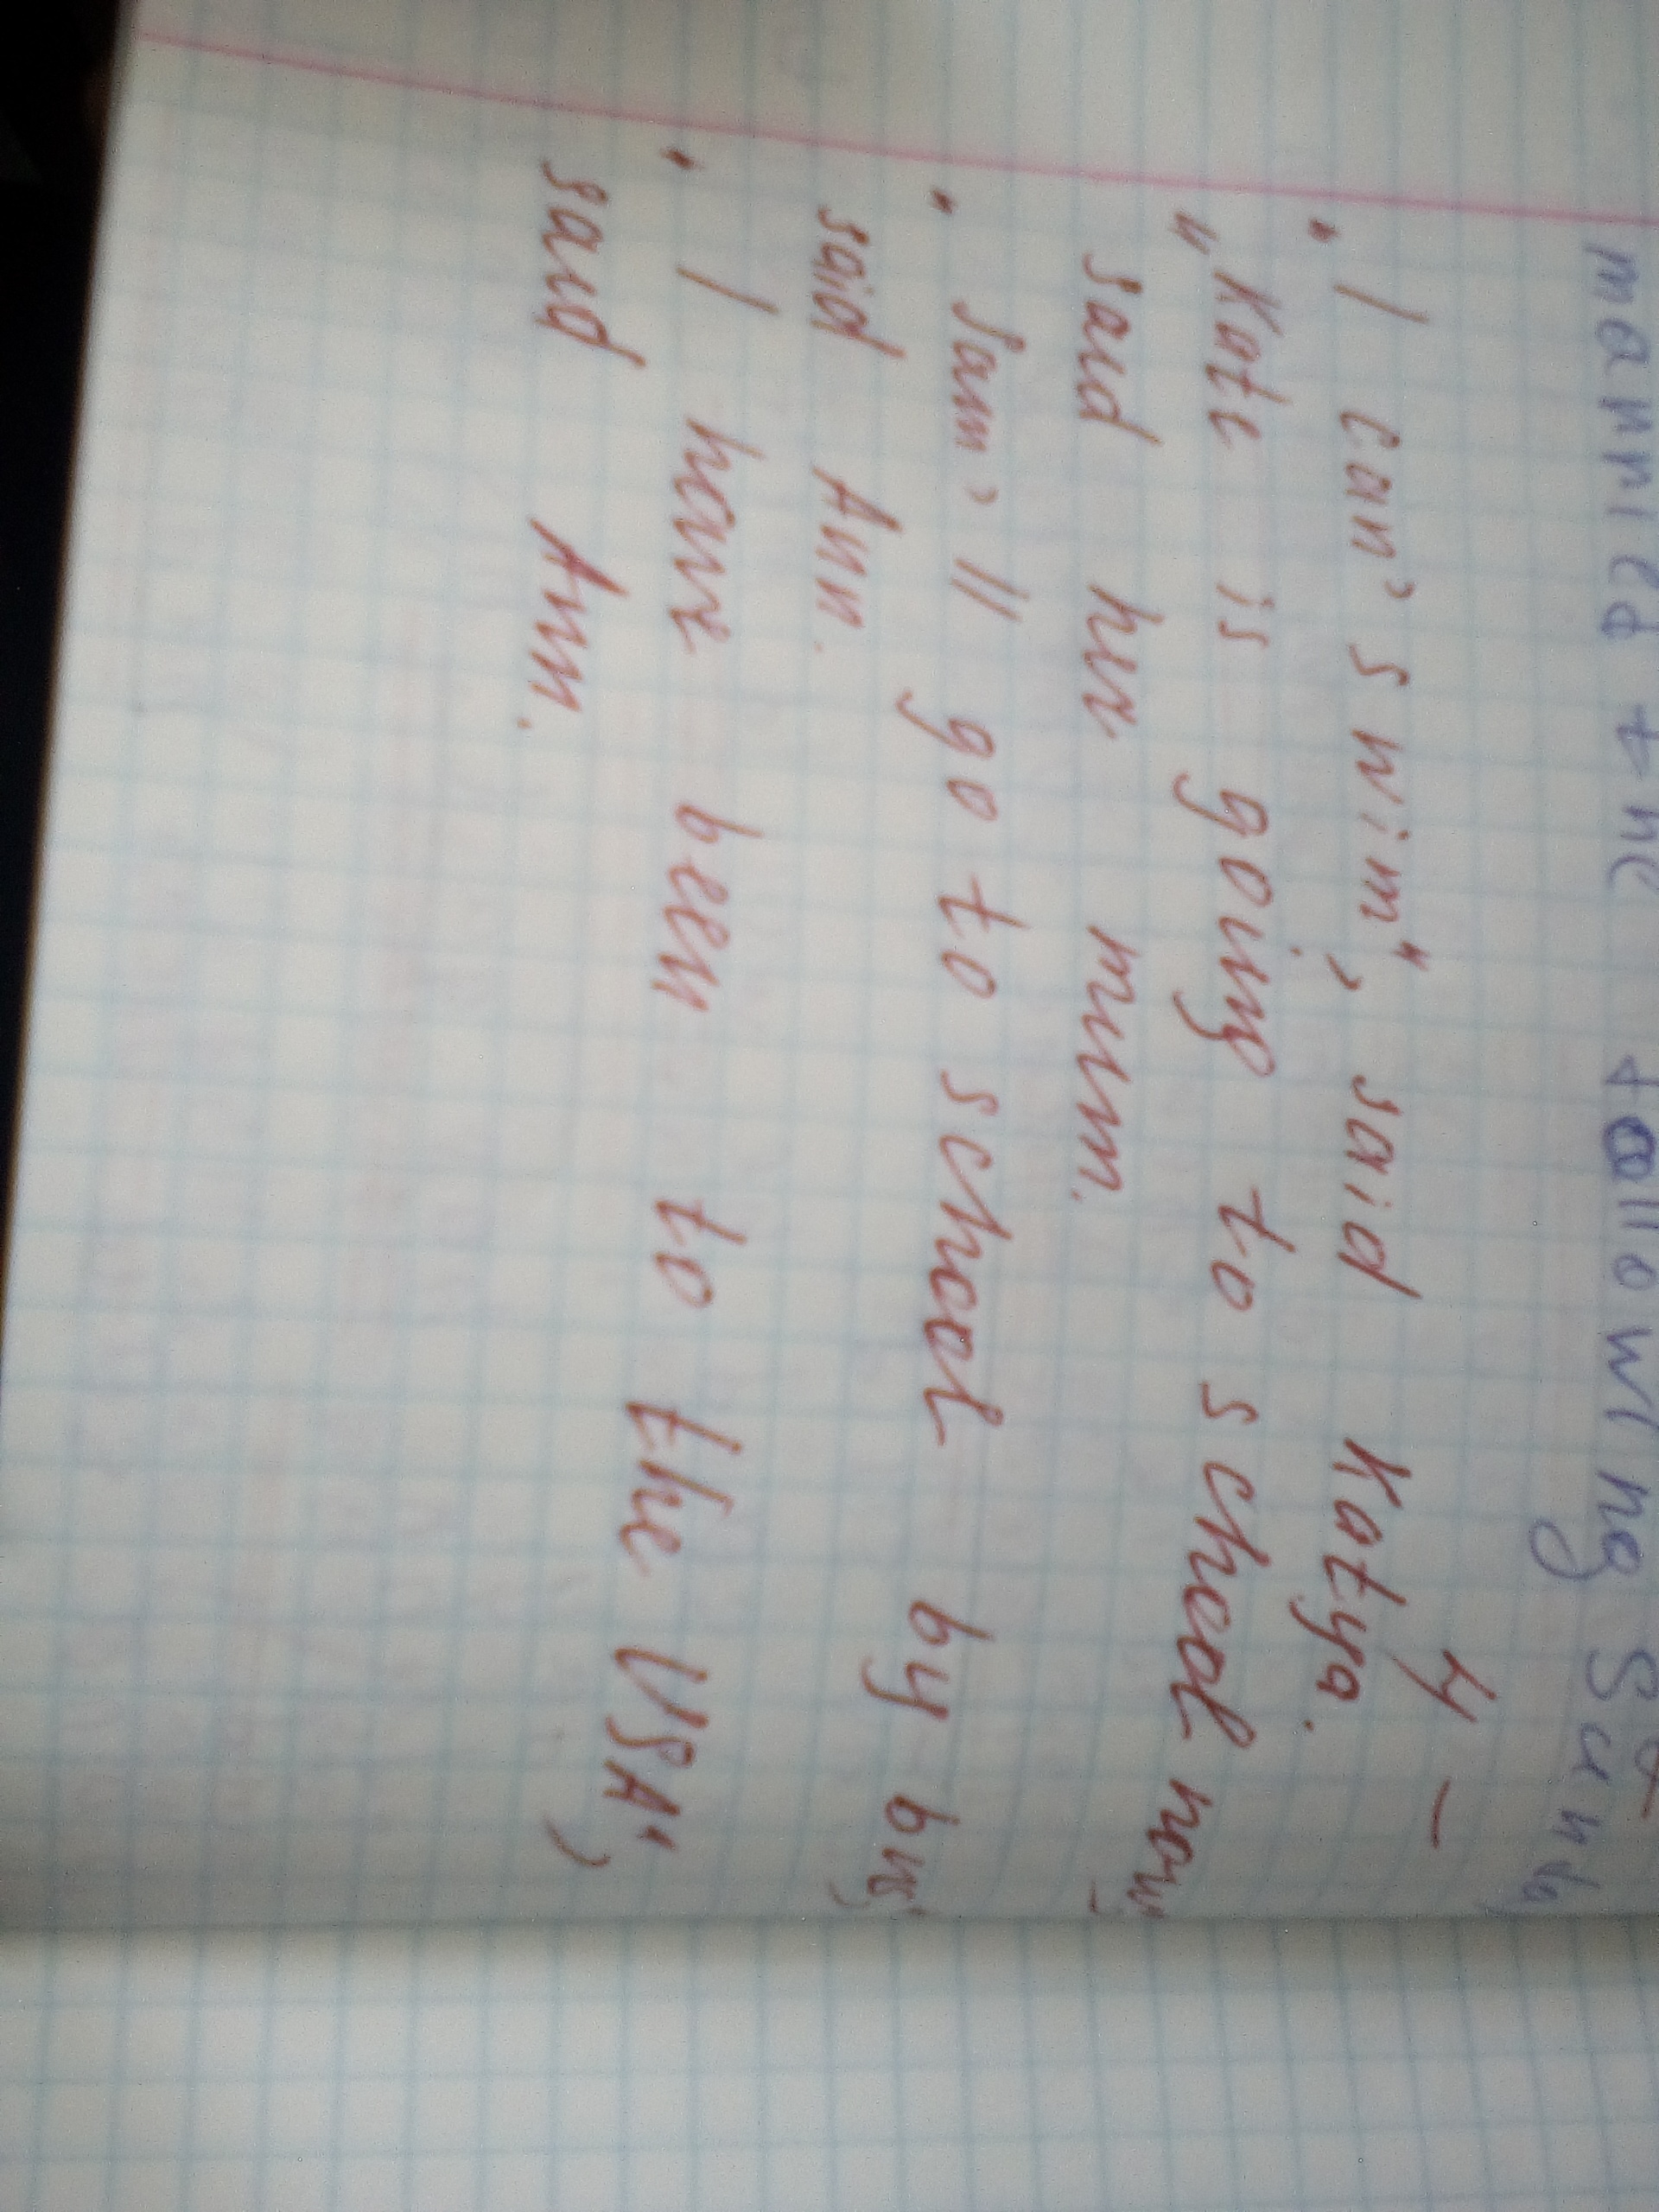 married the following Sunda
4 -
" I can' swim", said Katya.
" Kate is going to school now"
said her mum.
" Sam' ll go to school by bus",
said Ann.
" I have been to the USA",
said Ann.